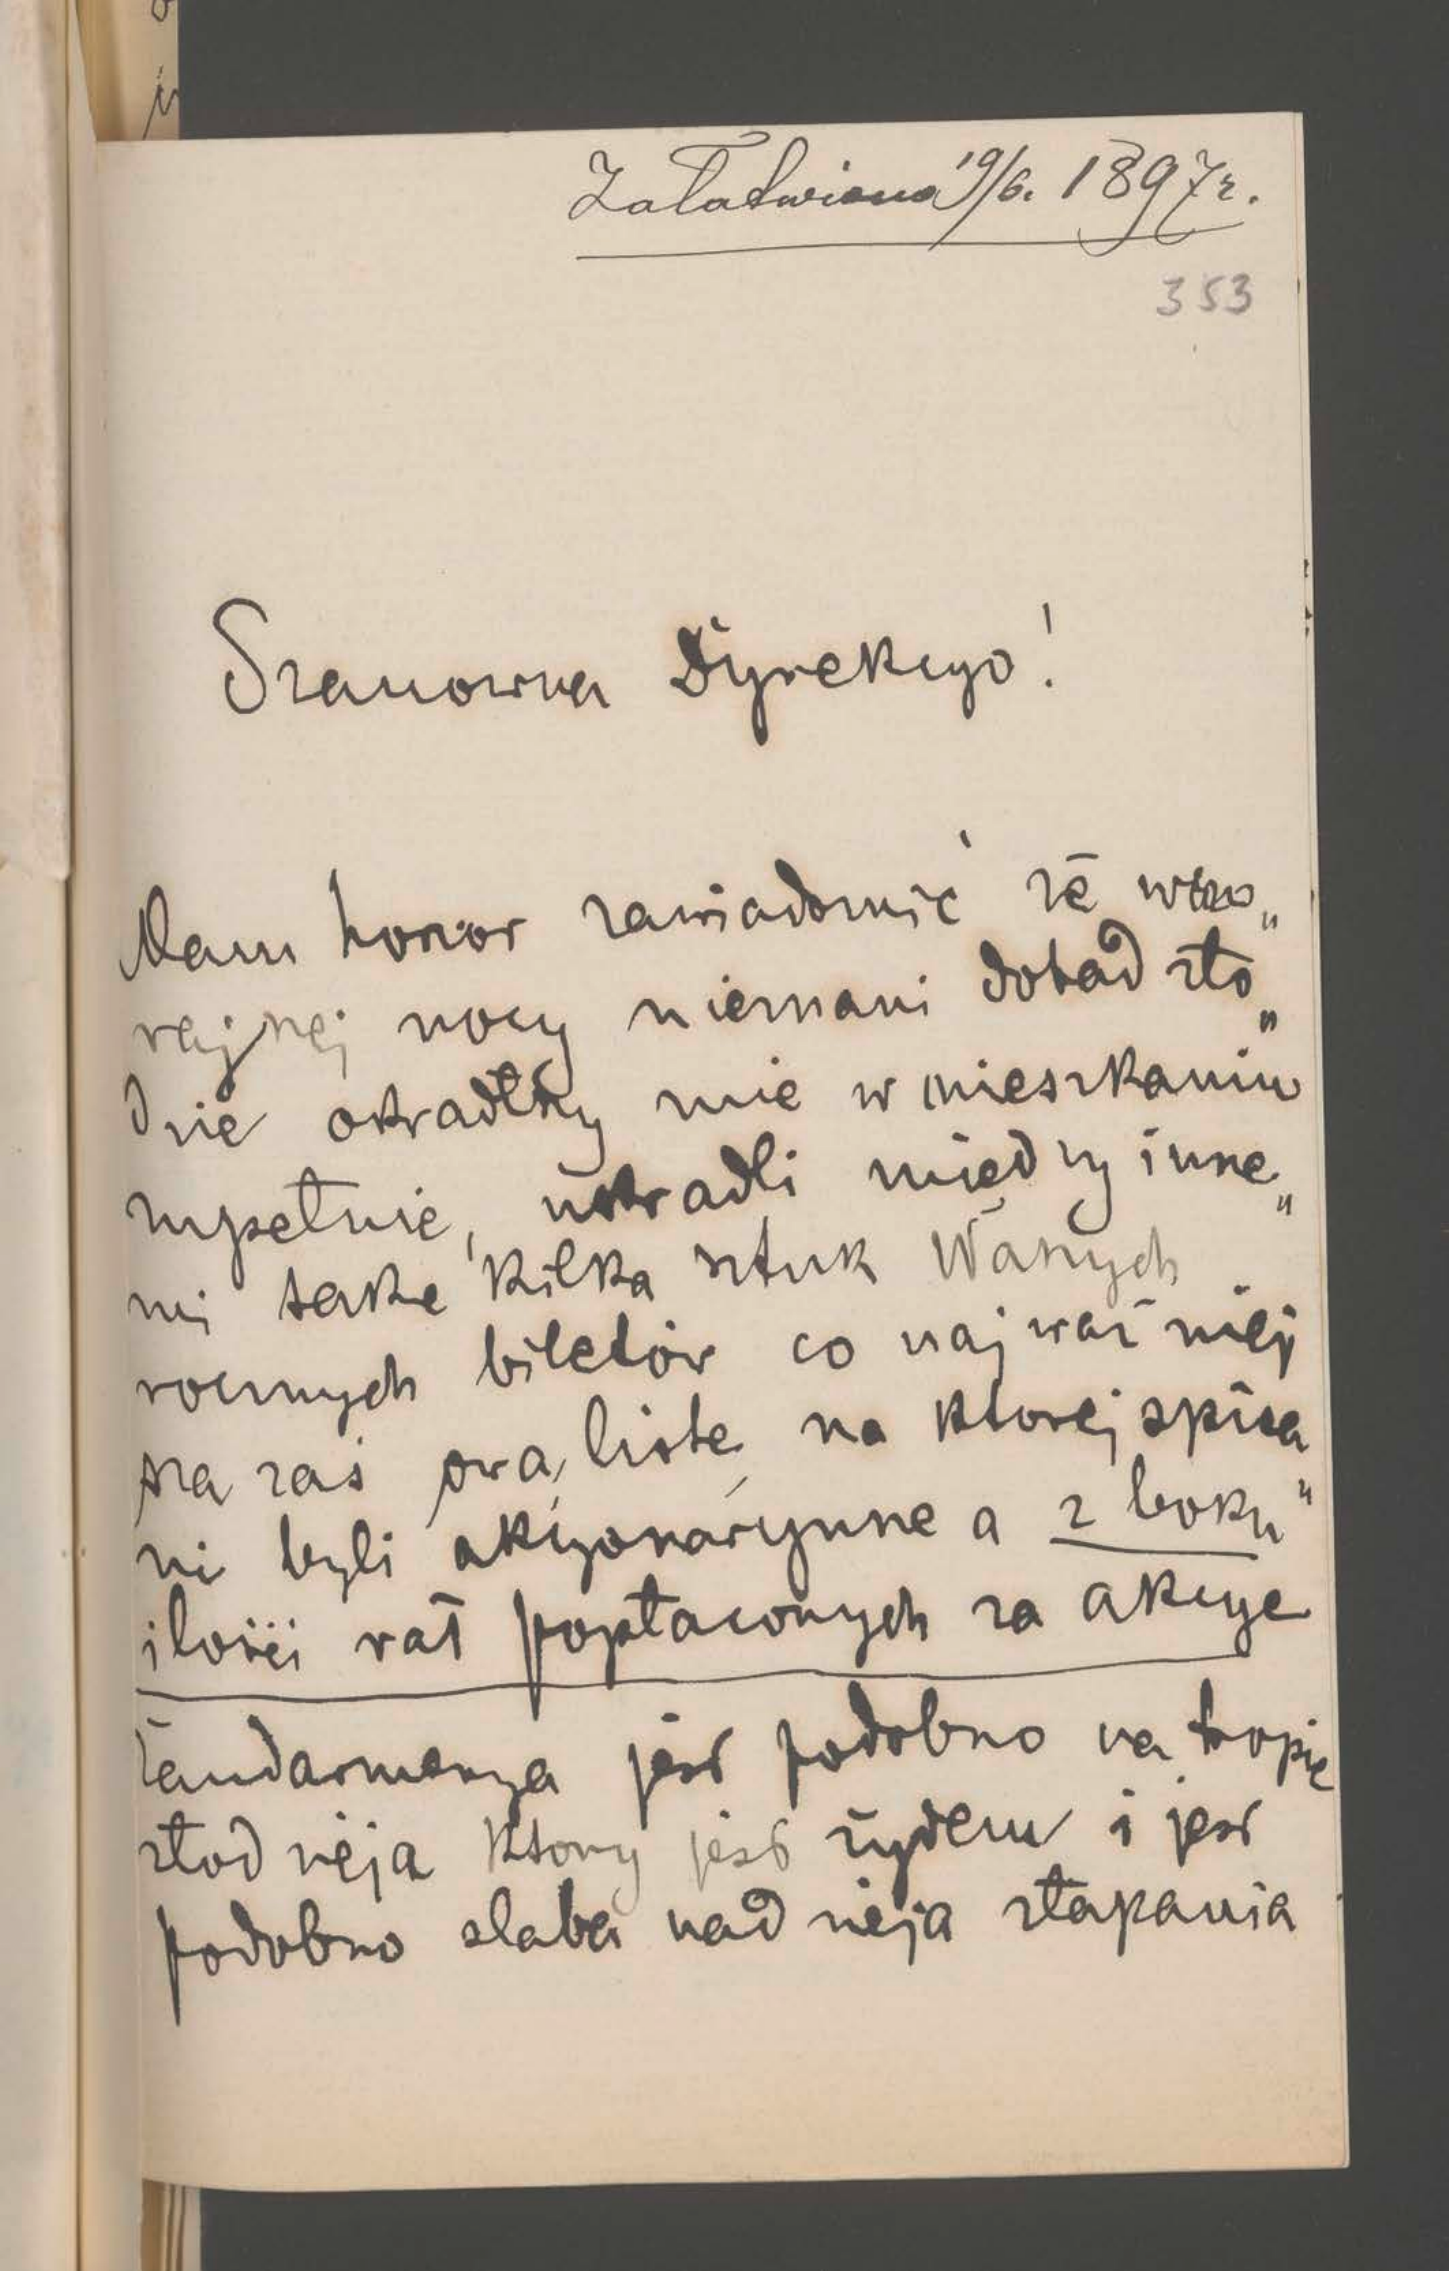 Załatwiono 19/6. 1897 r.
353
Szanowna Dyrekcyo!
Mam honor zawiadomić że wczo„
rajszej nocy nieznani dotąd zło„
dzieje okradłszy mie w mieszkaniu
zupełnie, ukradli między inne„
mi także kilka sztuk Waszych
rocznych biletów co najważniej
sza zaś ową listę na ktorej spisa„
ni byli akcyonaryusze a z boku
ilości rat popłaconych za akcye
Żandarmerya jest podobno na tropie
złodzieja ktory jest żydem i jest
podobno słaba nadzieja złapania